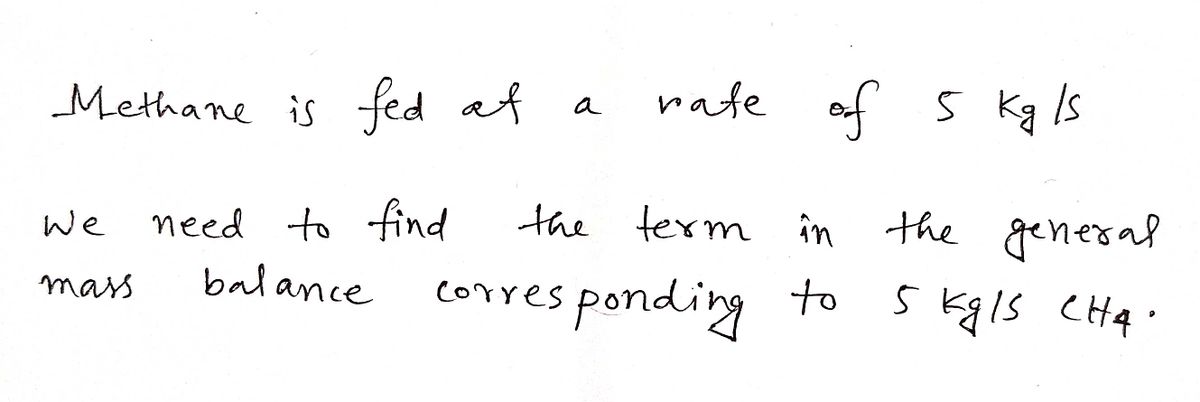 Methane is fed at a rate of 5 Kg/s
We need to find the term in the general
mass balance corresponding to 5 Kg/s CH4.